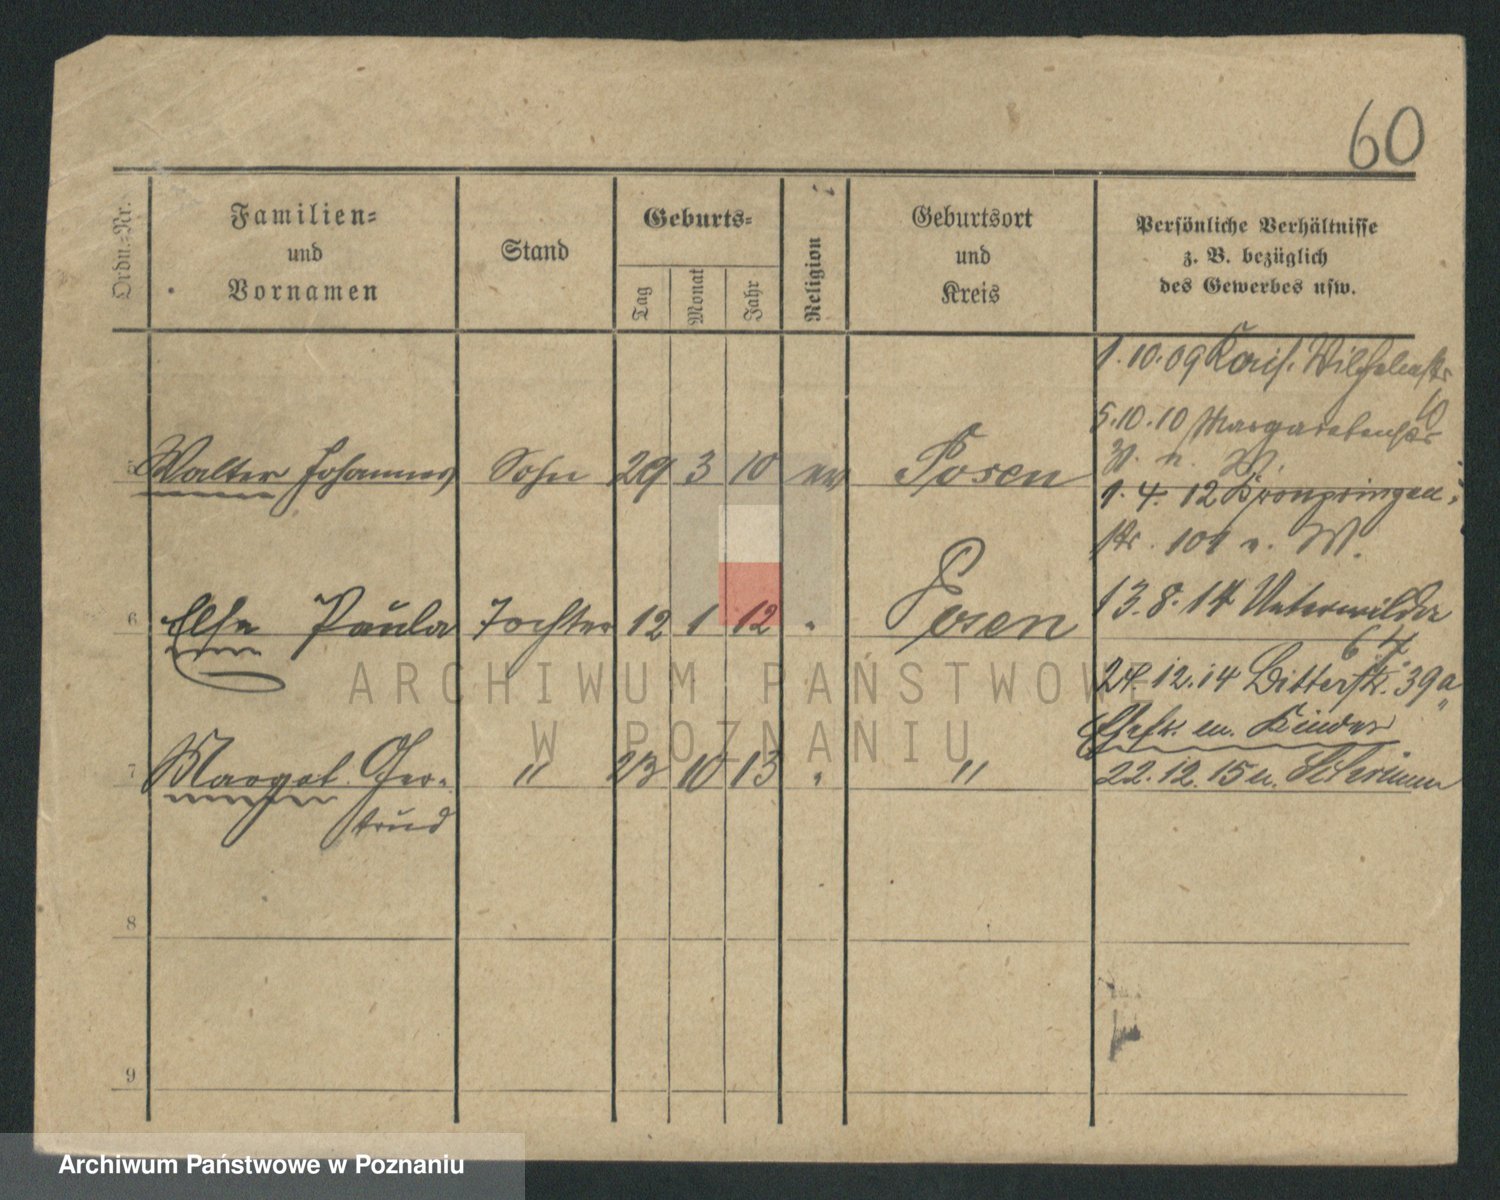 60
Ordn.-Nr.
Familien-
und
Vornamen
Stand
Geburts-
Tag
Monat
Jahr
Religion
Geburtsort
und
Kreis
Persönliche Verhältnisse
z. B. bezüglich
des Gewerbes usw.
1.10.09 Kais. Wilhelmstr
10
5.10.10 Margaretenstr
5 Walter Johannes Sohn 29 3 10 ev Posen
1.4.12 Kronprinzen-
str. 101 n. W.
13.8.14 Unterwilda
6 Else Paula Tochter 12 1 12 " Posen
64
24.12.14 Bitterstr. 39a
Ehefr. m. Kinder
7 Margot Ger- " 23 10 13 " "
trud
22.12.15 n.
8
9
ARCHIWUM PAŃSTWOWE
W POZNANIU
Archiwum Państwowe w Poznaniu